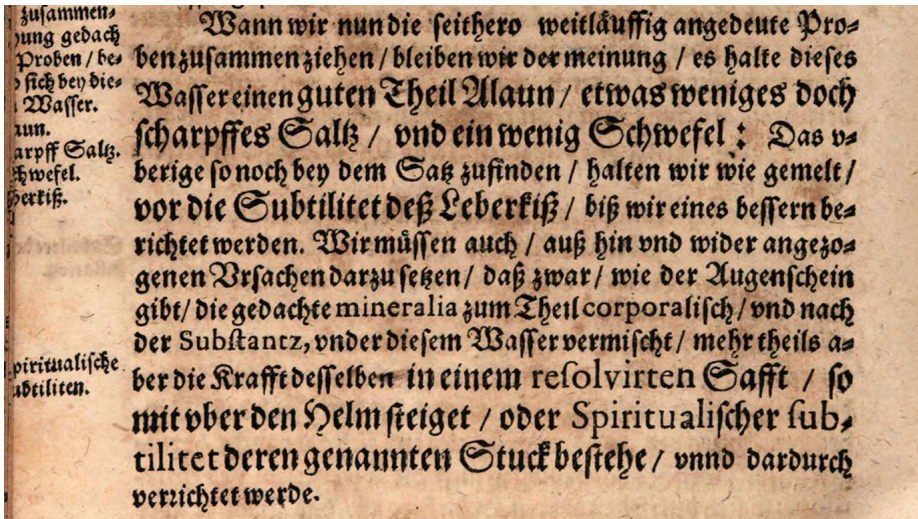 zusammen-
gedach
Proben / be-
sich bey die-
Wasser.
arpff Saltz.
hwefel.
berkiß.
piritualische
ubtiliten.
Wann wir nun die seithero weitläuffig angedeute Pro-
ben zusammen ziehen / bleiben wir der meinung / es halte dieses
Wasser einen guten Theil Alaun / etwas weniges doch
scharpffes Saltz / vnd ein wenig Schwefel: Das v-
berige so noch bey dem Satz zufinden / halten wir wie gemelt /
vor die Subtilitet deß Leberkiß / biß wir eines bessern be-
richtet werden. Wir müssen auch / auß hin vnd wider angezo-
genen Vrsachen darzu setzen / daß zwar / wie der Augenschein
gibt / die gedachte mineralia zum Theil corporalisch / vnd nach
der Substantz, vnder diesem Wasser vermischt / mehrtheils a-
ber die Krafft desselben in einem resolvirten Safft / so
mit vber den Helm steiget / oder Spiritualischer sub-
tilitet deren genannten Stuck bestehe / vnnd dardurch
verrichtet werde.